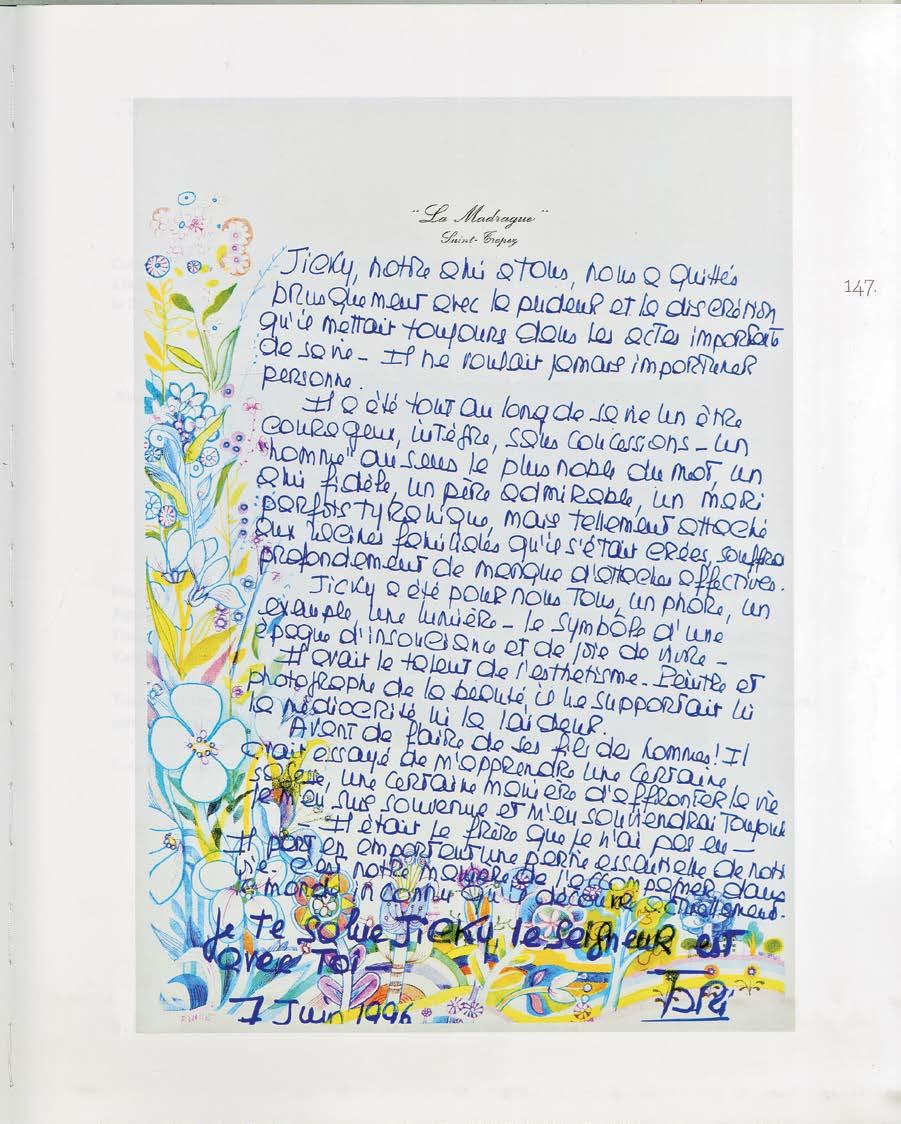 "La Madrague"
Saint-Tropez
147.
Jicky, notre ami a tous, nous a quittés
brusquement avec la pudeur et la discrétion
qu'il mettait toujours dans les actes importants
de sa vie - Il ne voulait jamais importuner
personne.
Il a été tout au long de sa vie un être
courageux, intègre, sans concessions - un
"homme" au sens le plus noble du mot, un
ami fidèle, un père admirable, un mari
parfois tyranique, mais tellement attaché
aux racines familiales qu'il s'était crées, souffrant
profondement de manque d'attaches affectives.
Jicky a été pour nous tous, un phare, un
exemple, une lumière - le symbôle d'une
époque d'insouciance et de joie de vivre -
Il avait le talent de l'esthetisme - Peintre et
photographe de la beauté il ne supportait ni
la médiocrité ni la laideur.
Avant de faire de ses fils des hommes! Il
avait essayé de m'apprendre une certaine
sagesse, une certaine manière d'affronter la vie
Je m'en suis souvenue et m'en souviendrai toujours
- Il était le frère que je n'ai pas eu -
Il part en emportant une partie essentielle de notre
vie - c'est notre manière de l'accompagner dans
ce monde inconnu qu'il découvre actuellement.
Je te salue Jicky, le seigneur est
avec Toi -
7 Juin 1996
Bri